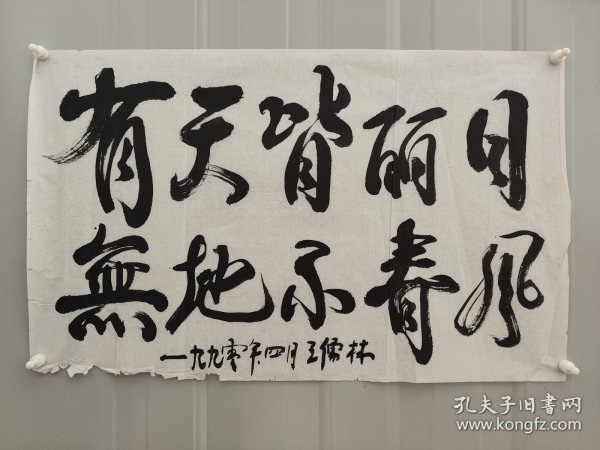 有天皆丽日
無地不春风
一九九零年四月王儒林
孔夫子旧書网
www.kongfz.com